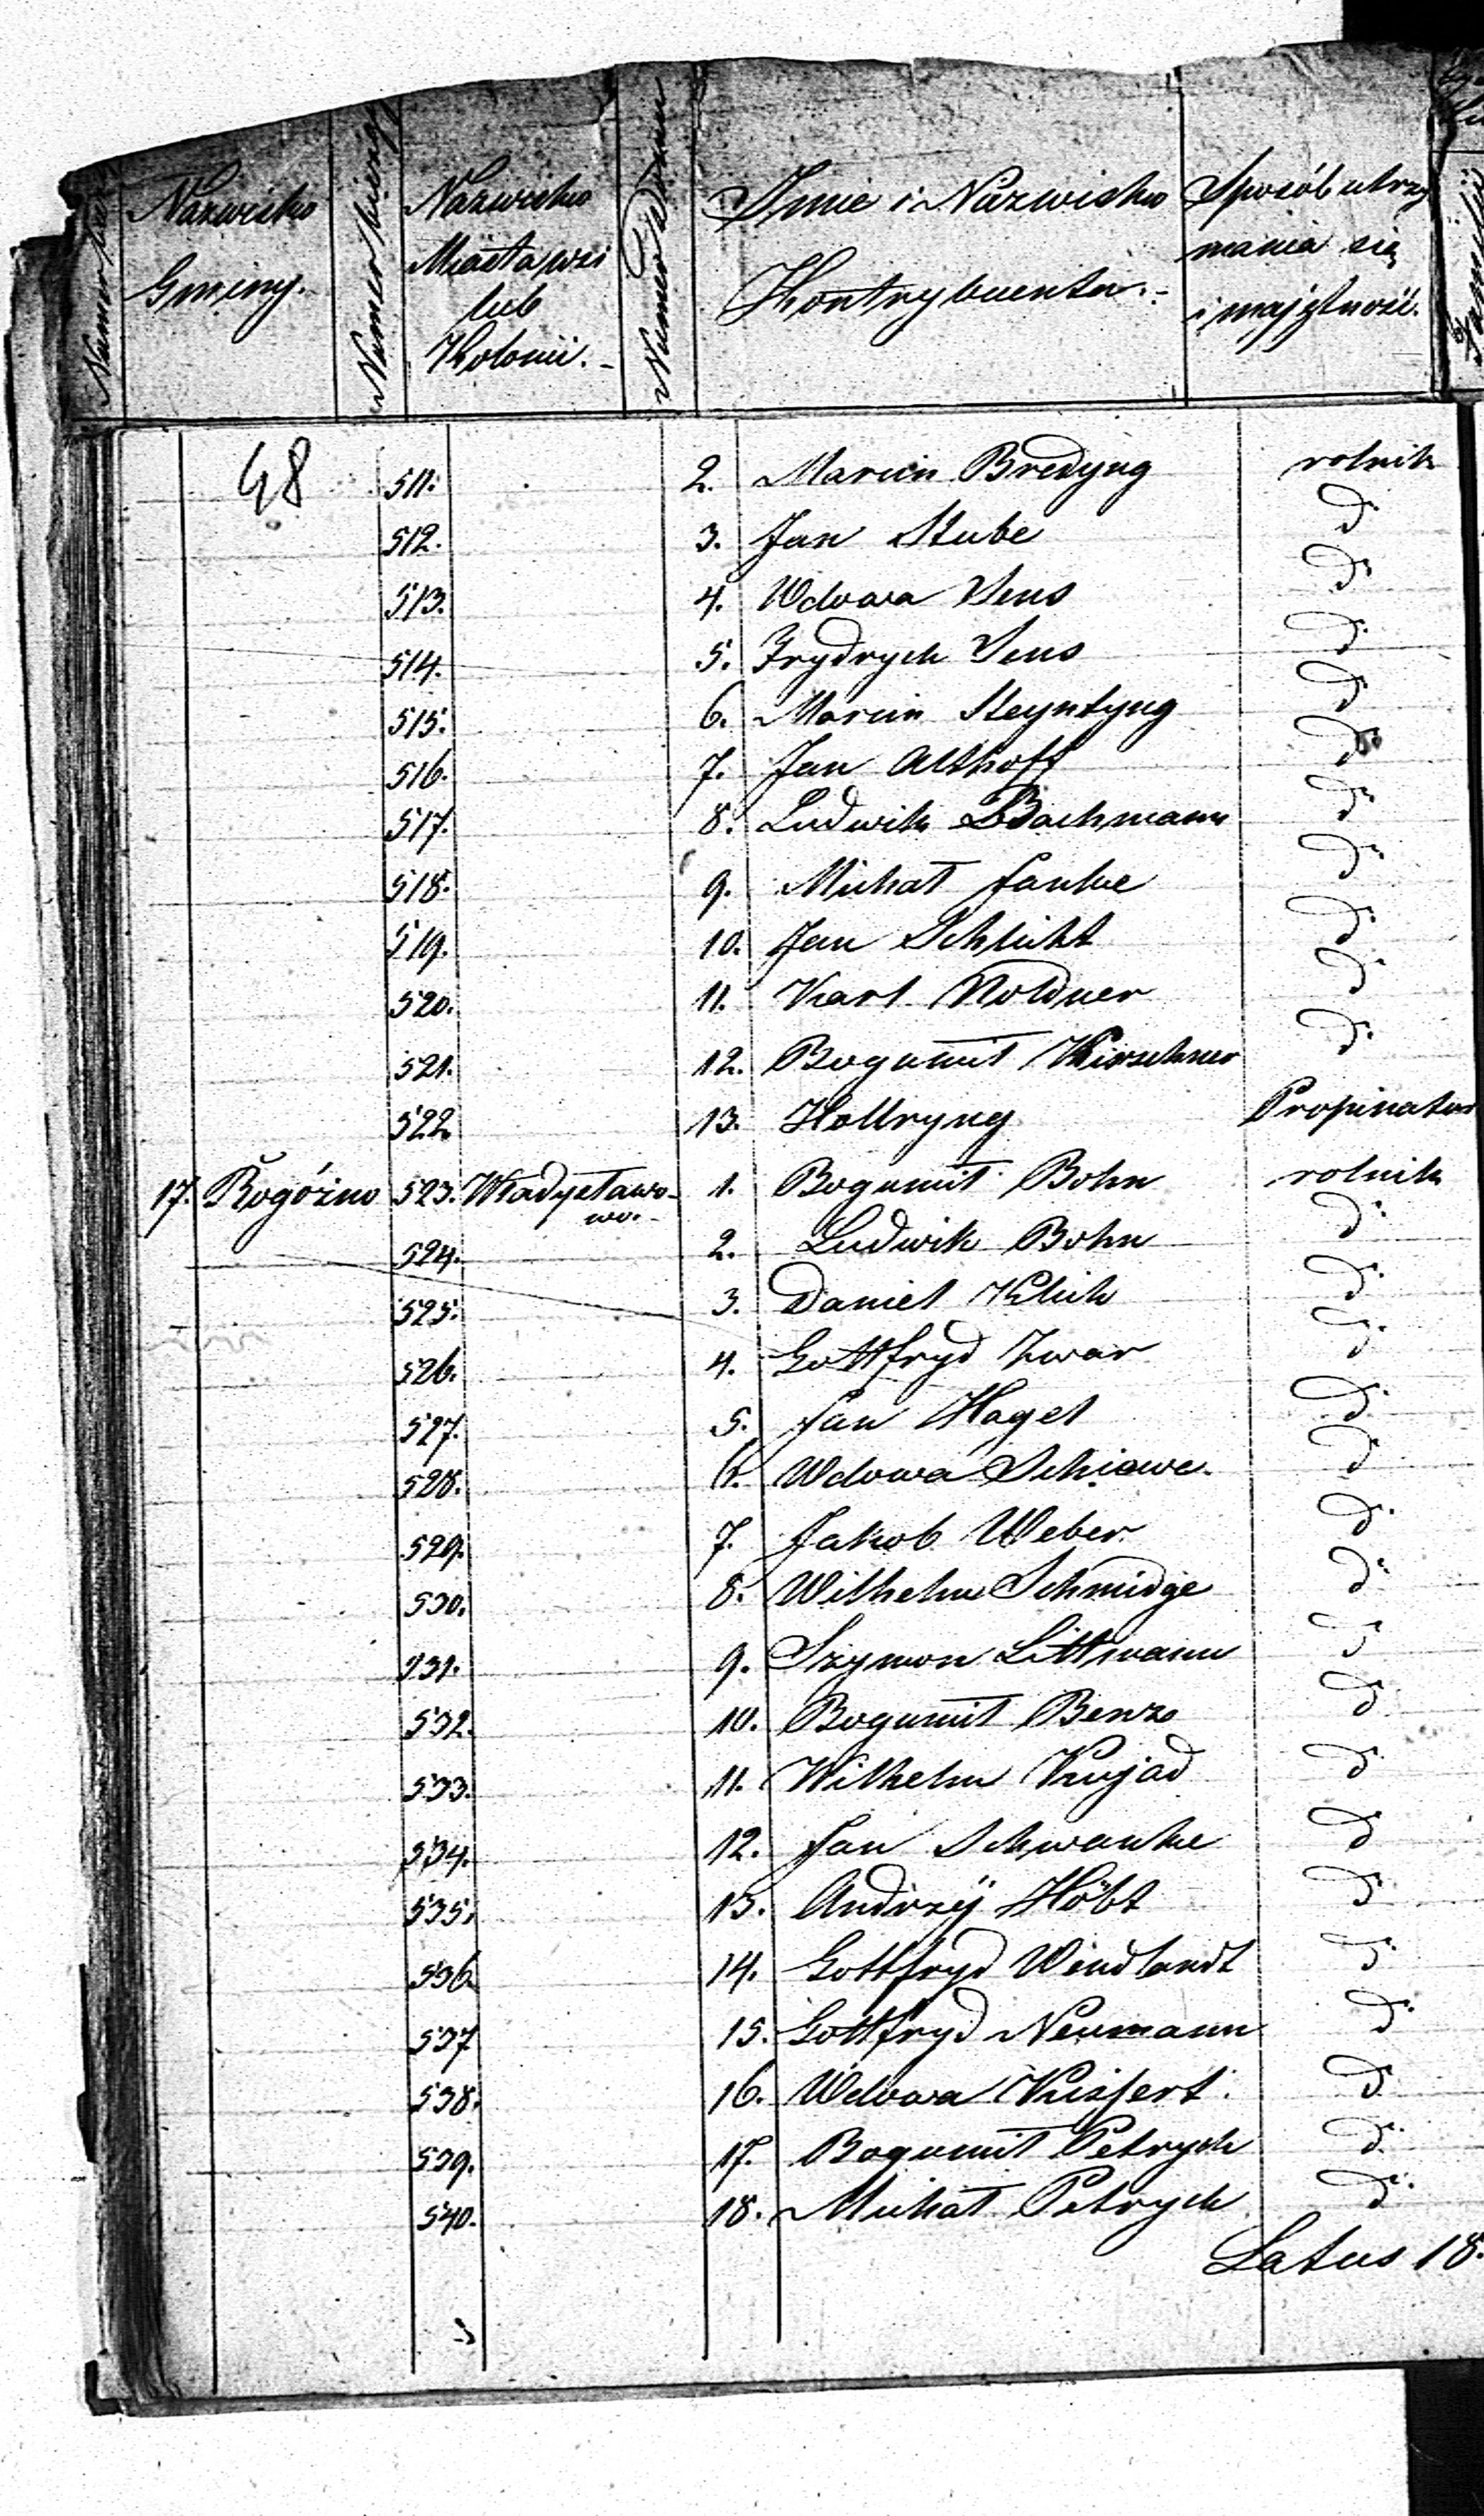 Nazwisko Gminy.
Nazwisko Miasta wsi lub Kolonii.
Numer Domu
Imie i Nazwisko Kontrybuenta.
Sposób utrzymania się i majętność.
48
511. 2. Marcin Bredyng rolnik
512. 3. Jan Stube d
513. 4. Wdowa Sens d
514. 5. Frydrych Sens d
515. 6. Marcin Steyntyng d
516. 7. Jan Althoff d
517. 8. Ludwik Bachmann d
518. 9. Michał Janke d
519. 10. Jan Schlicht d
520. 11. Karl Noldner d
521. 12. Bogumił Kirschner d
522 13. Hollryng Propinator
17. Rogóźno 523. Władysławowo. 1. Bogumił Bohn rolnik
524. 2. Ludwik Bohn d
525. 3. Daniel Klich d
526. 4. Gottfryd Zwar d
527. 5. Jan Hagel d
528. 6. Wdowa Schiewe d
529. 7. Jakob Weber d
530. 8. Wilhelm Schmidge d
531. 9. Szymon Littmann d
532. 10. Bogumił Benz d
533. 11. Wilhelm Kujad d
534. 12. Jan Schwanke d
535. 13. Andrzÿ Höbt d
536. 14. Gottfryd Windlandt d
537 15. Gottfryd Neumann d
538. 16. Wdowa d
539. 17. Bogumił Petrych d
540. 18. Michał Petrych d
Latus 18.